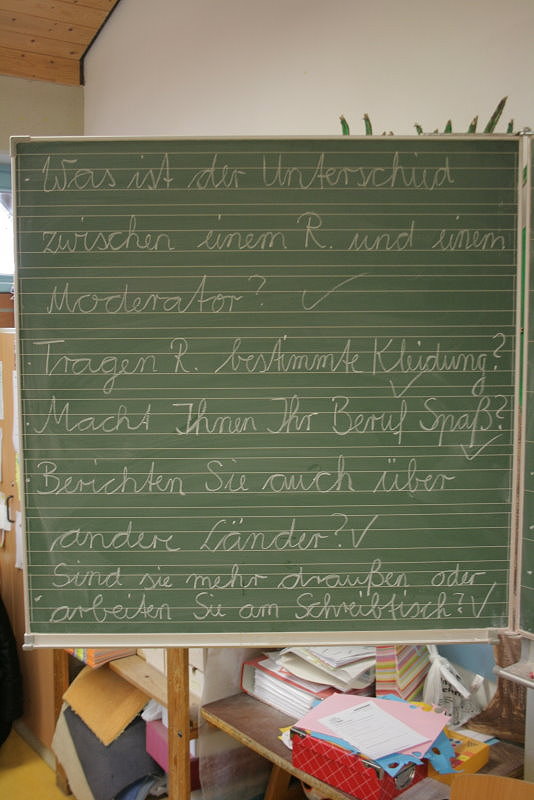 - Was ist der Unterschied
zwischen einem R. und einem
Moderator? ✓
- Tragen R. bestimmte Kleidung? ✓
- Macht Ihnen Ihr Beruf Spaß? ✓
- Berichten Sie auch über
andere Länder? ✓
Sind sie mehr draußen oder
- arbeiten Sie am Schreibtisch? ✓